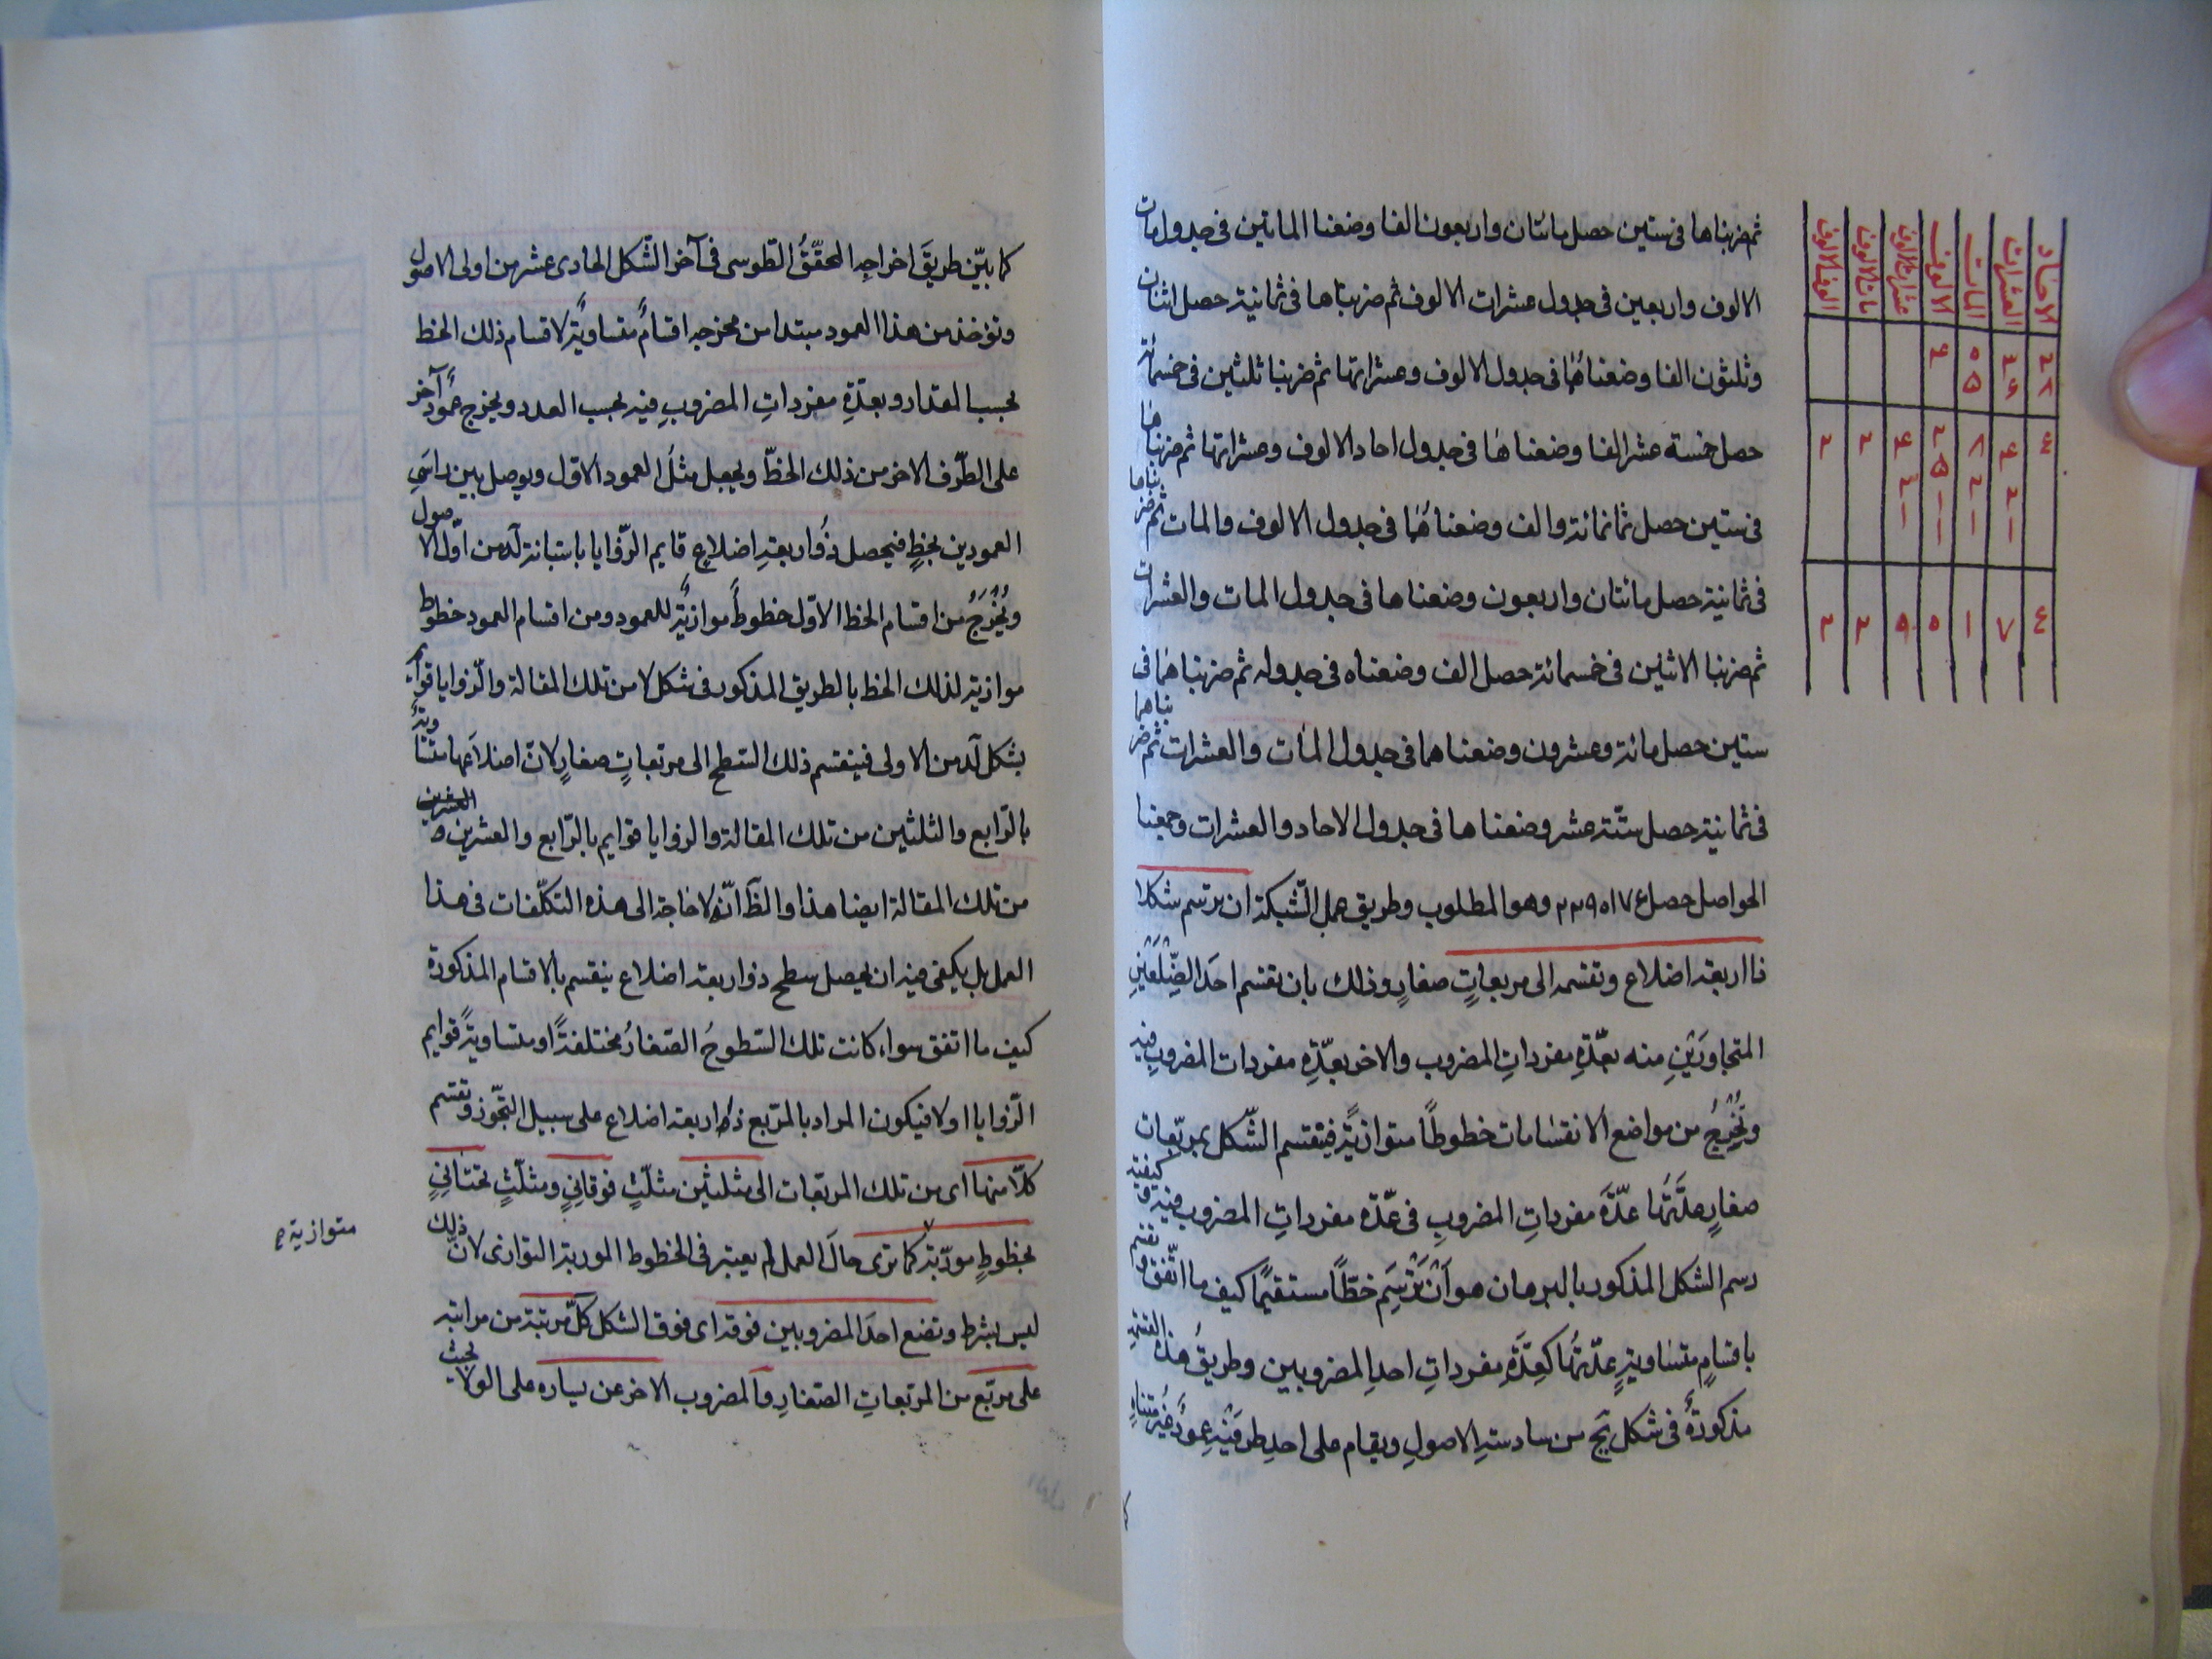 ثم ضربناها فى ستين حصل مائتان واربعون الفا وضعنا الماتين فى جدول مات
الالوف واربعين فى جدول عشرات الالوف ثم ضربناها فى ثمانية حصل اثنان
وثلثون الفا وضعناها فى جدول الالوف وعشراتها ثم ضربنا ثلثين فى خمسمائة
حصل خمسة عشر الفا وضعناها فى جدول احاد الالوف وعشراتها ثم ضربناها
فى ستين حصل ثمانمائة والف وضعناها فى جدول الالوف والمات ثم ضربناها
فى ثمانية حصل مائتان واربعون وضعناها فى جدول المات والعشرات
ثم ضربنا الاثنين فى خمسمائة حصل الف وضعناه فى جدوله ثم ضربناهما فى
ستين حصل مائة وعشرون وضعناهما فى جدول المأت والعشرات ثم ضربناهما
فى ثمانية حصل ستّة عشر وضعناها فى جدول الاحاد والعشرات وجمعنا
الحواصل حصل وهو المطلوب وطريق عمل الشّبكة ان ترتسم شكلا
ذا اربعة اضلاع وتقسمه الى مربعاتٍ صغارٍ وذلك بان تقسم احَد الضِّلعَيْنِ
المتجاورَيْنِ منه بعّدةِ مفرداتِ المضروب والاخر بعدّةِ مفردات المضروب فيه
وتُخْرِجُ من مواضع الانقسامات خطوطاً متوازيةً فينقسم الشّكل بمربّعات
صغارٍ عدّتُها عدّة مفرداتِ المضروبِ فى عدّة مفرداتِ المضروب فيه وكيفية
رسم الشكل المذكور بالبرهان هو اَنْ تَرْسِمَ خطّاً مستقيمًا كيف ما اتّفق وتقسم
باقسامٍ متساويةٍ عدّتُها كعِدَّةِ مفرداتِ احدِ المضروبين وطريقُ هذه القسمة
مذكورةٌ فى شكل من سادسةِ الاصولِ ويقام على احدِ طرفَيْهِ عمودٌ غيرُ متناهٍ
الاحاد
العشرات
المات
الالوف
عشرات الالوف
مات الالوف
الوف الالوف
كما بيّن طريقَ اخراجِه المحقّقُ الطّوسى فى آخر الشّكل الحادى عشر من اولى الاصول
وتؤخذ من هذا العمود مبتدا من مخرجه اقسامٌ متساويةٌ لاقسام ذلك الخط
بحسب المقدار وبعدّةِ مفرداتِ المضروبِ فيه بحسب العدد ويخرج عمودٌ آخر
على الطّرف الاخر من ذلك الخطّ ويجعل مثلَ العمود الاوّل ويوصل بين راسَىِ
العمودين بخطٍ فيحصل ذُو اربعةِ اضلاعٍ قايم الزّوايا باستبانة لَد من اوّل الاصول
ويُخْرَجُ من اقسام الخط الاوّل خطوطٌ موازيةٌ للعمود ومن اقسام العمود خطوط
موازية لذلك الخط بالطريق المذكور فى شكل لا من تلك المقالة والزّوايا قوايم
بشكل لَد من الاولى فينقسم ذلك السّطح الى مربّعاتٍ صغارٍ لانّ اضلاعَها متساويةٌ
بالرّابع والثلثين من تلك المقالة والزوايا قوايم بالرّابع والعشرين
من تلك المقالة ايضا هذا والظّ انّه لا حاجة الى هذه التكلّفات فى هذا
العمل بل يكفى فيه ان يحصل سطح ذو اربعة اضلاع ينقسم بالاقسام المذكورة
كيف ما اتفق سواء كانت تلك السّطوحُ الصّغارُ مختلفةً او متساويةً قوايم
الزّوايا او لا فيكون المراد بالمربّع ذو اربعة اضلاع على سبيل التّجّوز وتقسم
كلّا منها اى من تلك المربّعات الى مثلثَيْن مثلّثٍ فوقانىٍ ومثلّثٍ تحتانىٍ
بخطوطٍ مورّبة كما ترى حالَ العمل لم يعتبر فى الخطوط الموربة التوازى لانّ ذلك
ليس بشرط وتضع احدَ المضروبين فوقه اى فوق الشكل كلّ مرتبة من مراتبه
على مربّع من المربّعاتِ الصّغارِ والمضروب الاخر عن يساره على الولاء بحيث
متوازية